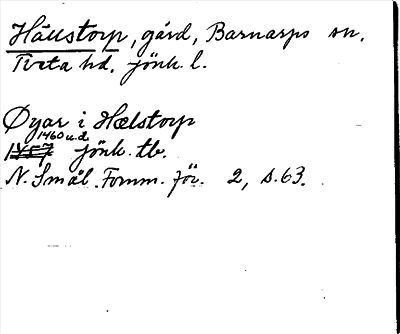 Hällstorp, gård, Barnarps sn.
Tveta hd. Jönk. l.
Øyar i Hælstorp
1460 u.d.
Jönk. tb.
N. Smål. Fornm. för. 2, s. 63.